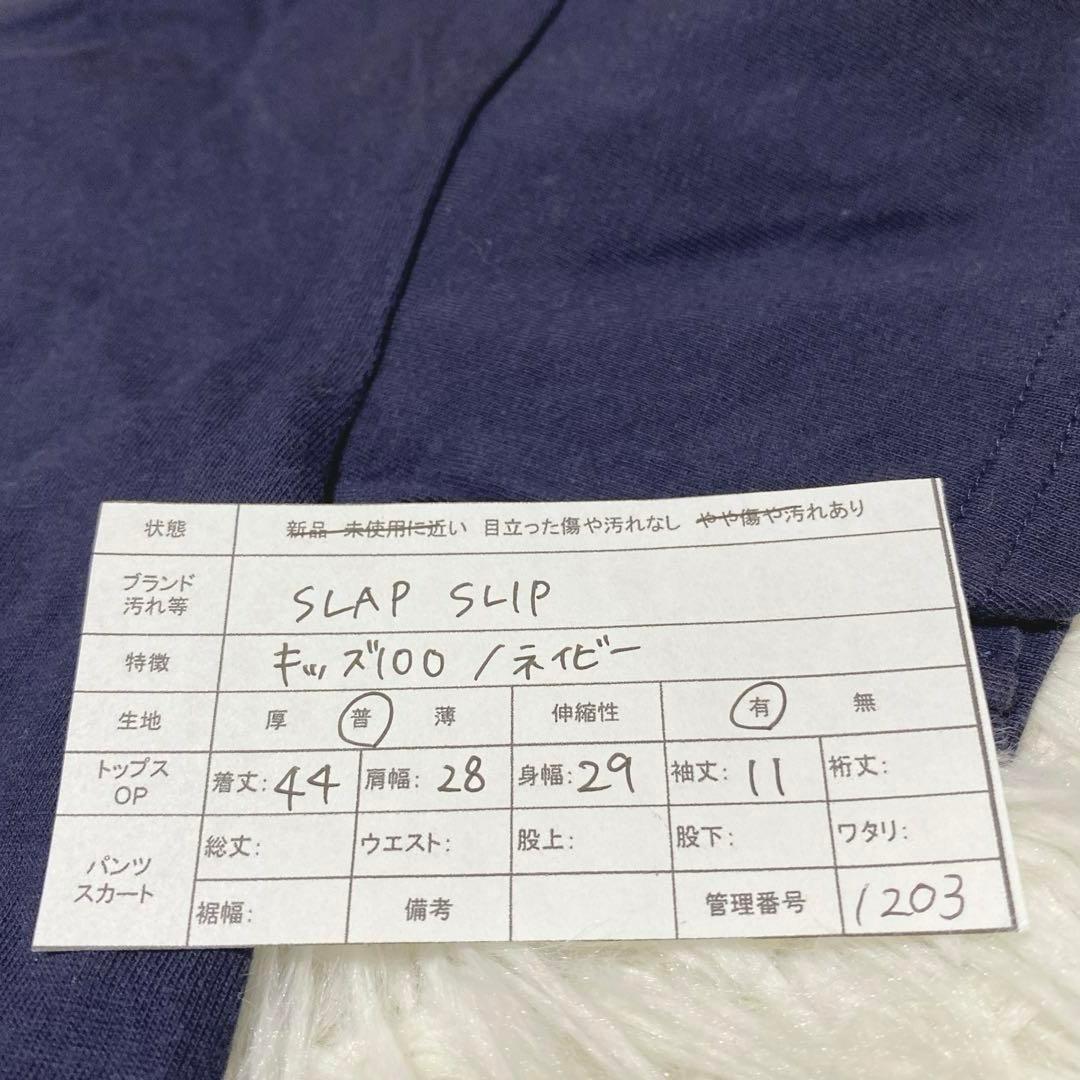 状態 新品 未使用に近い 目立った傷や汚れなし やや傷や汚れあり
ブランド
汚れ等
SLAP SLIP
特徴 キッズ100/ネイビー
生地 厚 普 薄 伸縮性 有 無
トップス
OP
着丈:44 肩幅:28 身幅:29 袖丈:11 裄丈:
パンツ
スカート
総丈: ウエスト: 股上: 股下: ワタリ:
裾幅: 備考 管理番号 1203